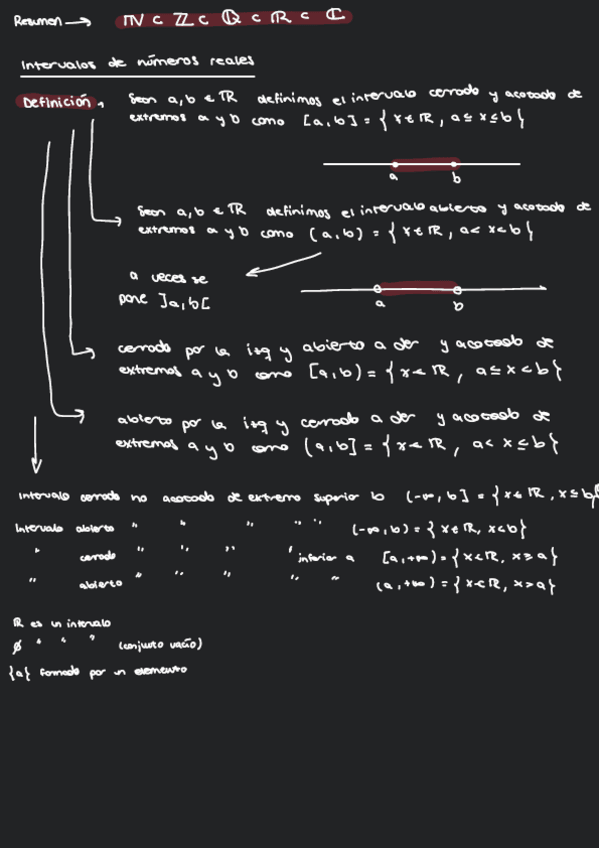 Resumen → ℕ ⊂ ℤ ⊂ ℚ ⊂ ℝ ⊂ ℂ
Intervalos de números reales
Definición, Sean a,b ∈ ℝ definimos el intervalo cerrado y acotado de
extremos a y b como [a,b] = { x ∈ ℝ, a ≤ x ≤ b }
a b
Sean a,b ∈ ℝ definimos el intervalo abierto y acotado de
extremos a y b como (a,b) = { x ∈ ℝ, a < x < b }
a veces se
pone ]a,b[
a b
cerrado por la izq y abierto a der y acotado de
extremos a y b como [a,b) = { x ∈ ℝ, a ≤ x < b }
abierto por la izq y cerrado a der y acotado de
extremos a y b como (a,b] = { x ∈ ℝ, a < x ≤ b }
Intervalo cerrado no acotado de extremo superior b (-∞, b] = { x ∈ ℝ, x ≤ b }
Intervalo abierto " " " " " (-∞, b) = { x ∈ ℝ, x < b }
" cerrado " " " " inferior a [a, +∞) = { x ∈ ℝ, x ≥ a }
" abierto " " " " " (a, +∞) = { x ∈ ℝ, x > a }
ℝ es un intervalo
∅ " " " (conjunto vacío)
{a} formado por un elemento